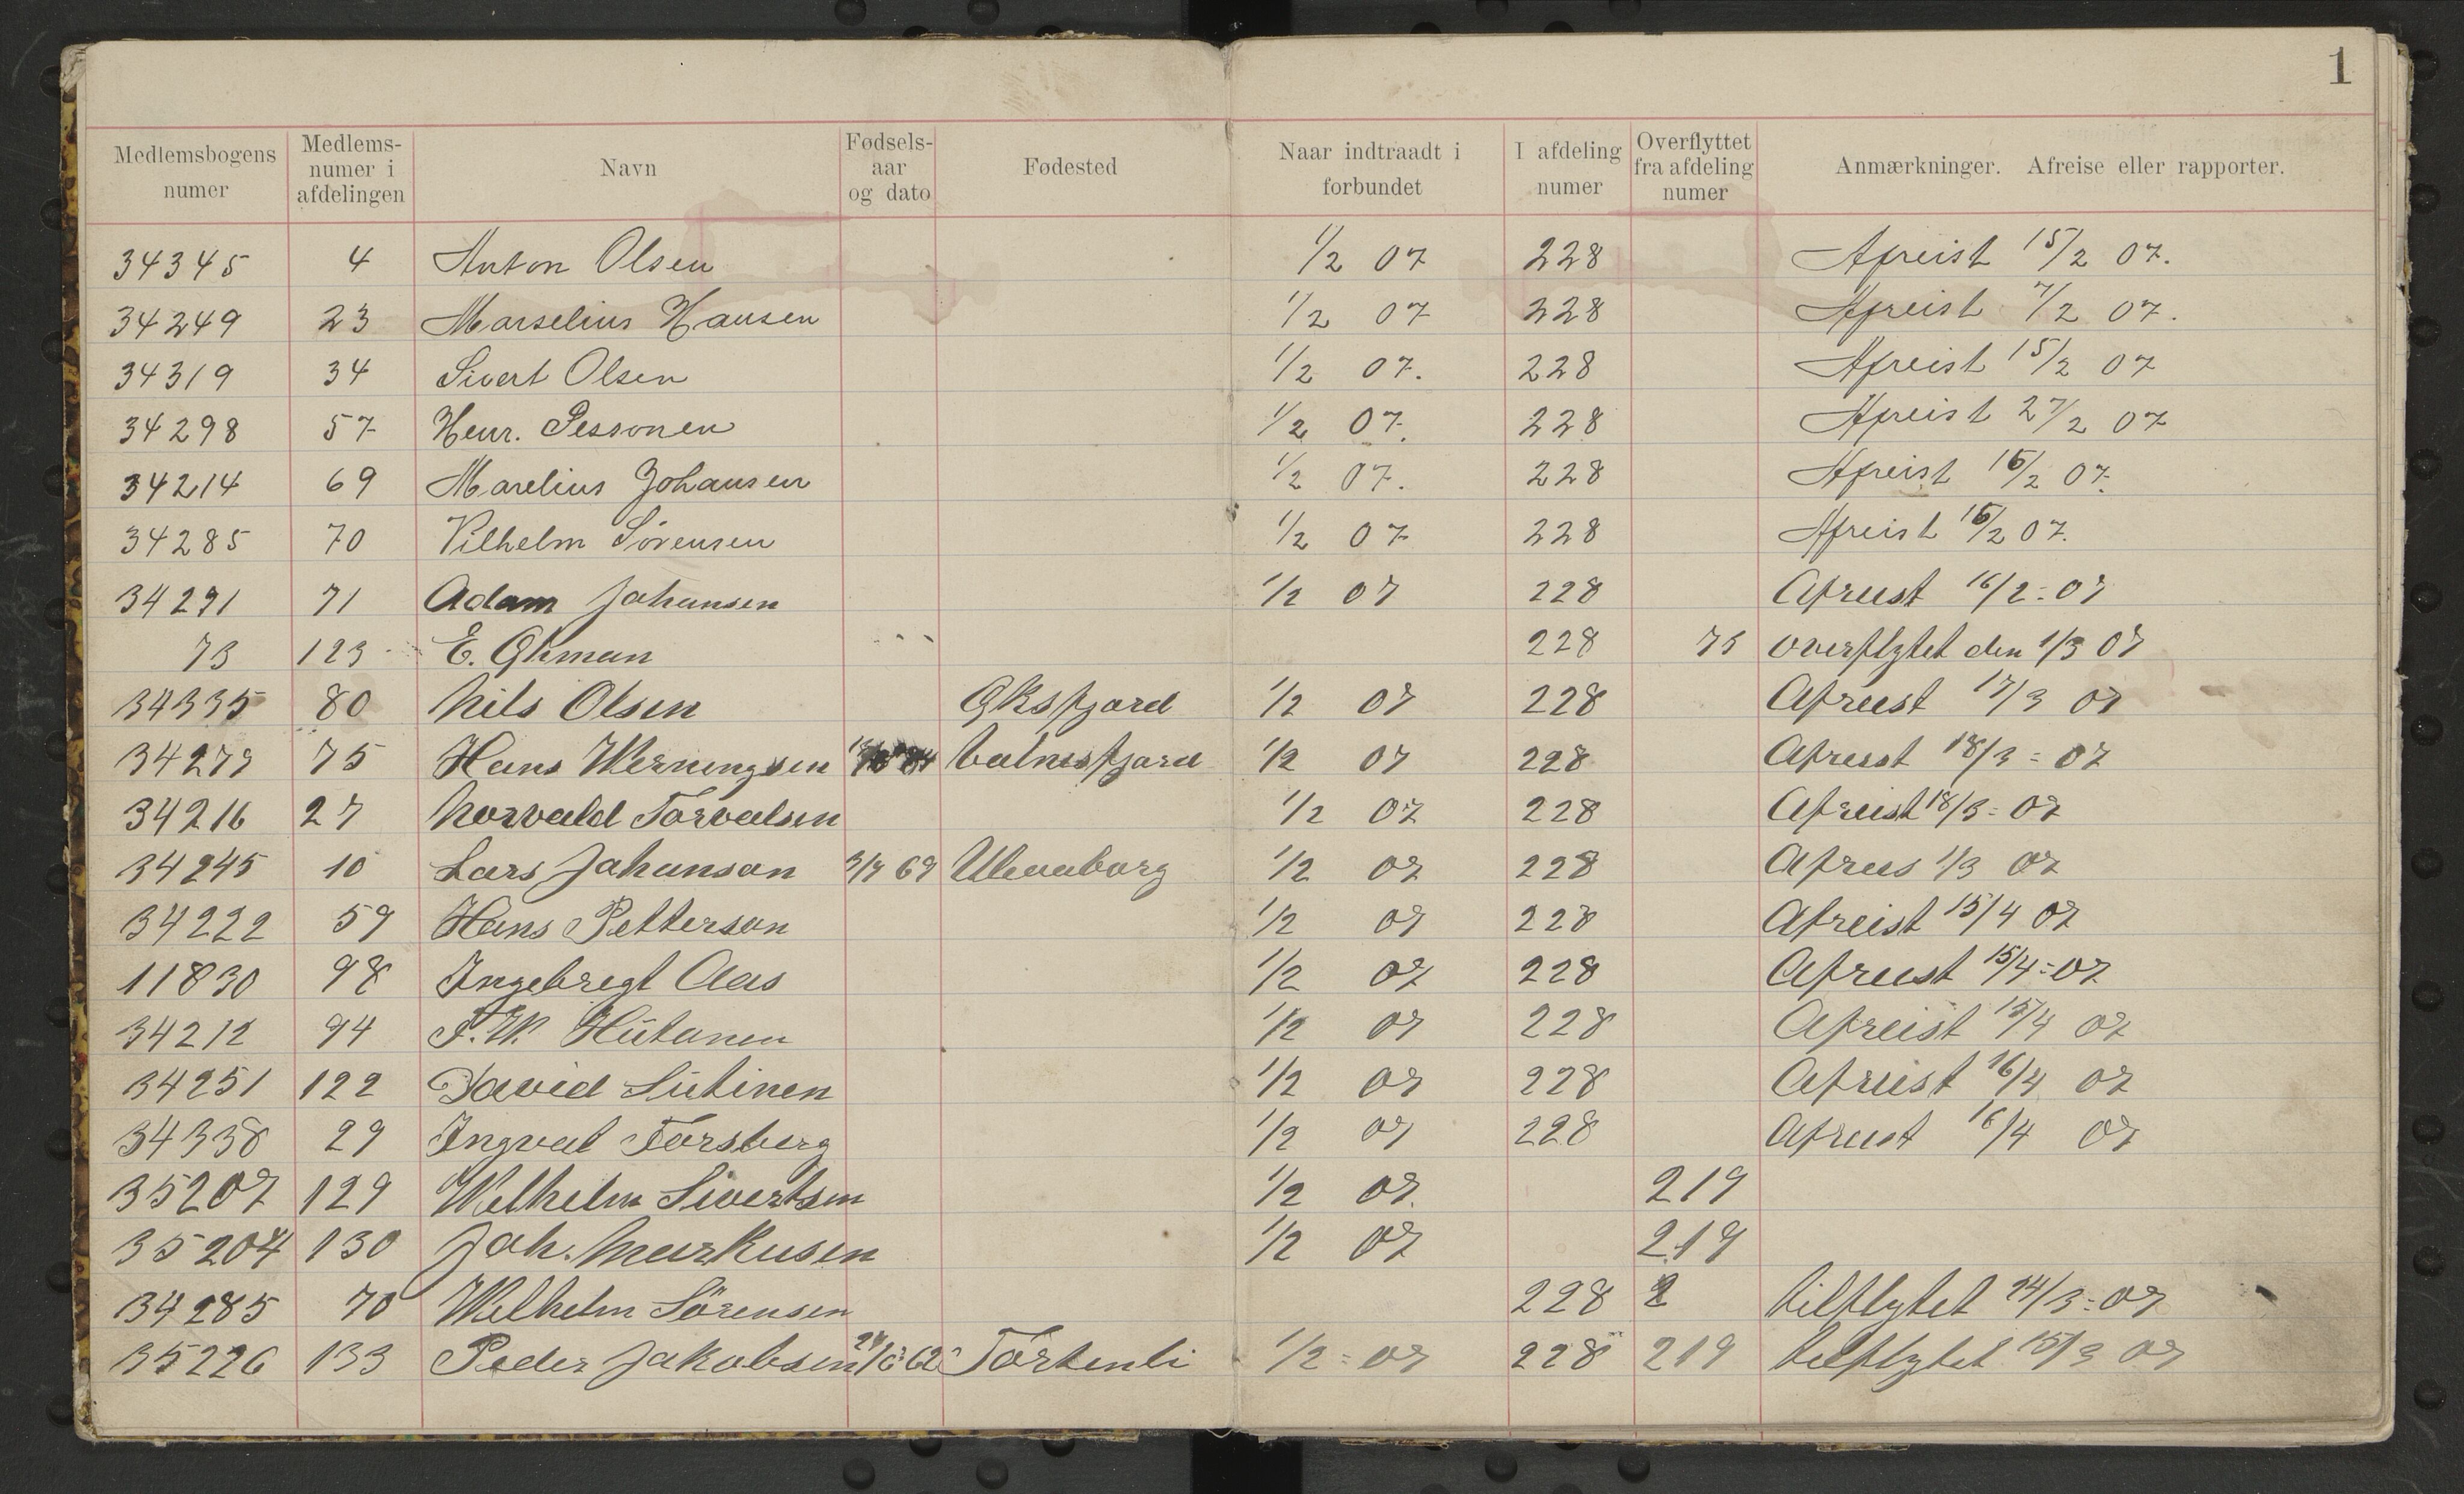 1
Medlemsbogens numer | Medlems-numer i afdelingen | Navn | Fødsels-aar og dato | Fødested | Naar indtraadt i forbundet | I afdeling numer | Overflyttet fra afdeling numer | Anmærkninger. Afreise eller rapporter.
34345 4 Anton Olsen 1/2 07 228 Afreist 15/2 07.
34249 23 Marselius Hansen 1/2 07 228 Afreist 7/2 07.
34319 34 Sivert Olsen 1/2 07. 228 Afreist 15/2 07
34298 57 Henr. Pessonen 1/2 07. 228 Afreist 27/2 07
34214 69 Marelius Johansen 1/2 07. 228 Afreist 16/2 07.
34285 70 Vilhelm Sörensen 1/2 07 228 Afreist 16/2 07.
34291 71 Adam Johansen 1/2 07 228 Afreist 16/2 = 07
73 123 E. Öhman 228 75 overflytet den 1/3 07
34335 80 Nils Olsen Öksfjord 1/2 07 228 Afreist 17/3 07
34279 75 Hans Werningsen Valnesfjord 1/2 07 228 Afreist 18/3 = 07
34216 27 Norvald Torvalsen 1/2 07 228 Afreist 18/3 = 07
34245 10 Lars Johanson 3/7 69 Uleaborg 1/2 07 228 Afreis 1/3 07
34222 59 Hans Petterson 1/2 07 228 Afreist 15/4 07
11830 98 Ingebregt Aas 1/2 07 228 Afreist 15/4 = 07
34212 94 Hütanen 1/2 07 228 Afreist 15/4 07
34251 122 David Lütinen 1/2 07 228 Afreist 16/4 07
34338 29 Ingval Forsberg 1/2 07 228 Afreist 16/4 07
35207 129 Welhelm Sivertsen 1/2 07. 219
35204 130 Joh. Markusen 1/2 07 219
34285 70 Welhelm Sörensen 228 2 tilflytet 24/3 = 07
35226 133 Peder Jakobsen 62 Törtenli 1/2 = 07 228 219 tilflytet 15/3 07